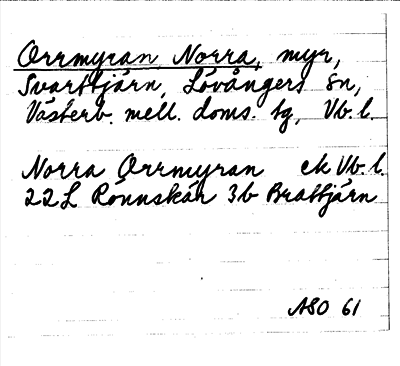 Orrmyran, Norra, myr,
Svarttjärn, Lövångers sn,
Västerb. mell. doms. tg, Vb. l.
Norra Orrmyran ek Vb. l.
22L Rönnskär 3b Brattjärn
ASO 61